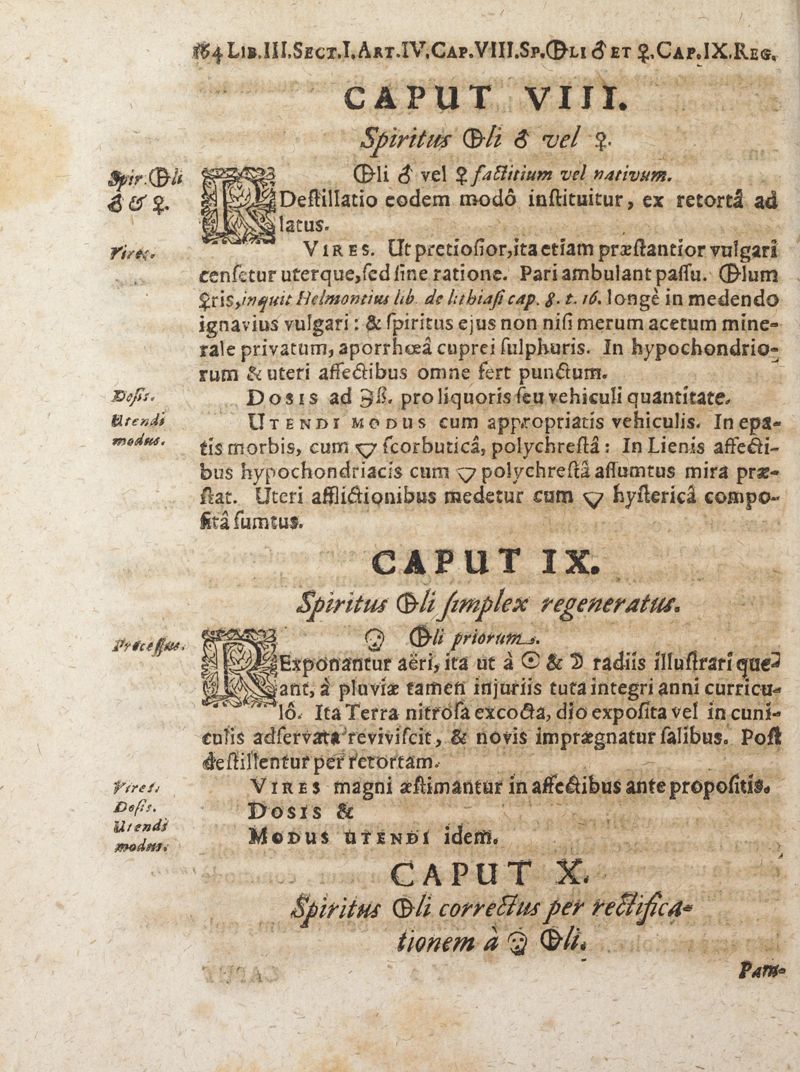 164 LIB.III.SECT.I.ART.IV.CAP.VIII.SP.🜖LI ♂ ET ♀.CAP.IX.REG.
CAPUT VIII.
Spiritus 🜖li ♂ vel ♀.
Spir. 🜖li
♂ & ♀.
℞ 🜖li ♂ vel ♀ factitium vel nativum.
Destillatio eodem modô instituitur, ex retortâ ad
latus.
Vires.
VIRES. Ut pretiosior, ita etiam præstantior vulgari
censetur uterque, sed sine ratione. Pari ambulant passu. 🜖lum
♀ris, inquit Helmontius lib. de lithiasi cap. 8. t. 16. longè in medendo
ignavius vulgari: & spiritus ejus non nisi merum acetum mine-
rale privatum, aporrhœâ cuprei sulphuris. In hypochondrio-
rum & uteri affectibus omne fert punctum.
Dosis.
DOSIS ad ʒß. pro liquoris seu vehiculi quantitate.
Utendi
modus.
UTENDI MODUS cum appropriatis vehiculis. In epa-
tis morbis, cum 🜄 scorbuticâ, polychrestâ: In Lienis affecti-
bus hypochondriacis cum 🜄 polychrestâ assumtus mira præ-
stat. Uteri afflictionibus medetur cum 🜄 hystericâ compo-
sitâ sumtus.
CAPUT IX.
Spiritus 🜖li simplex regeneratus.
Processus.
℞ 🝎 🜖li priorum.
Exponantur aëri, ita ut à ☉ & ☽ radiis illustrari que-
ant, à pluviæ tamen injuriis tuta integri anni curricu-
lô. Ita Terra nitrosa excocta, dio exposita vel in cuni-
culis adservata reviviscit, & novis imprægnatur salibus. Post
destillentur per retortam.
Vires.
VIRES magni æstimantur in affectibus ante propositis.
Dosis.
DOSIS &
Utendi
modus.
MODUS UTENDI idem.
CAPUT X.
Spiritus 🜖li correctus per rectifica-
tionem à 🝎 🜖li.
Para-